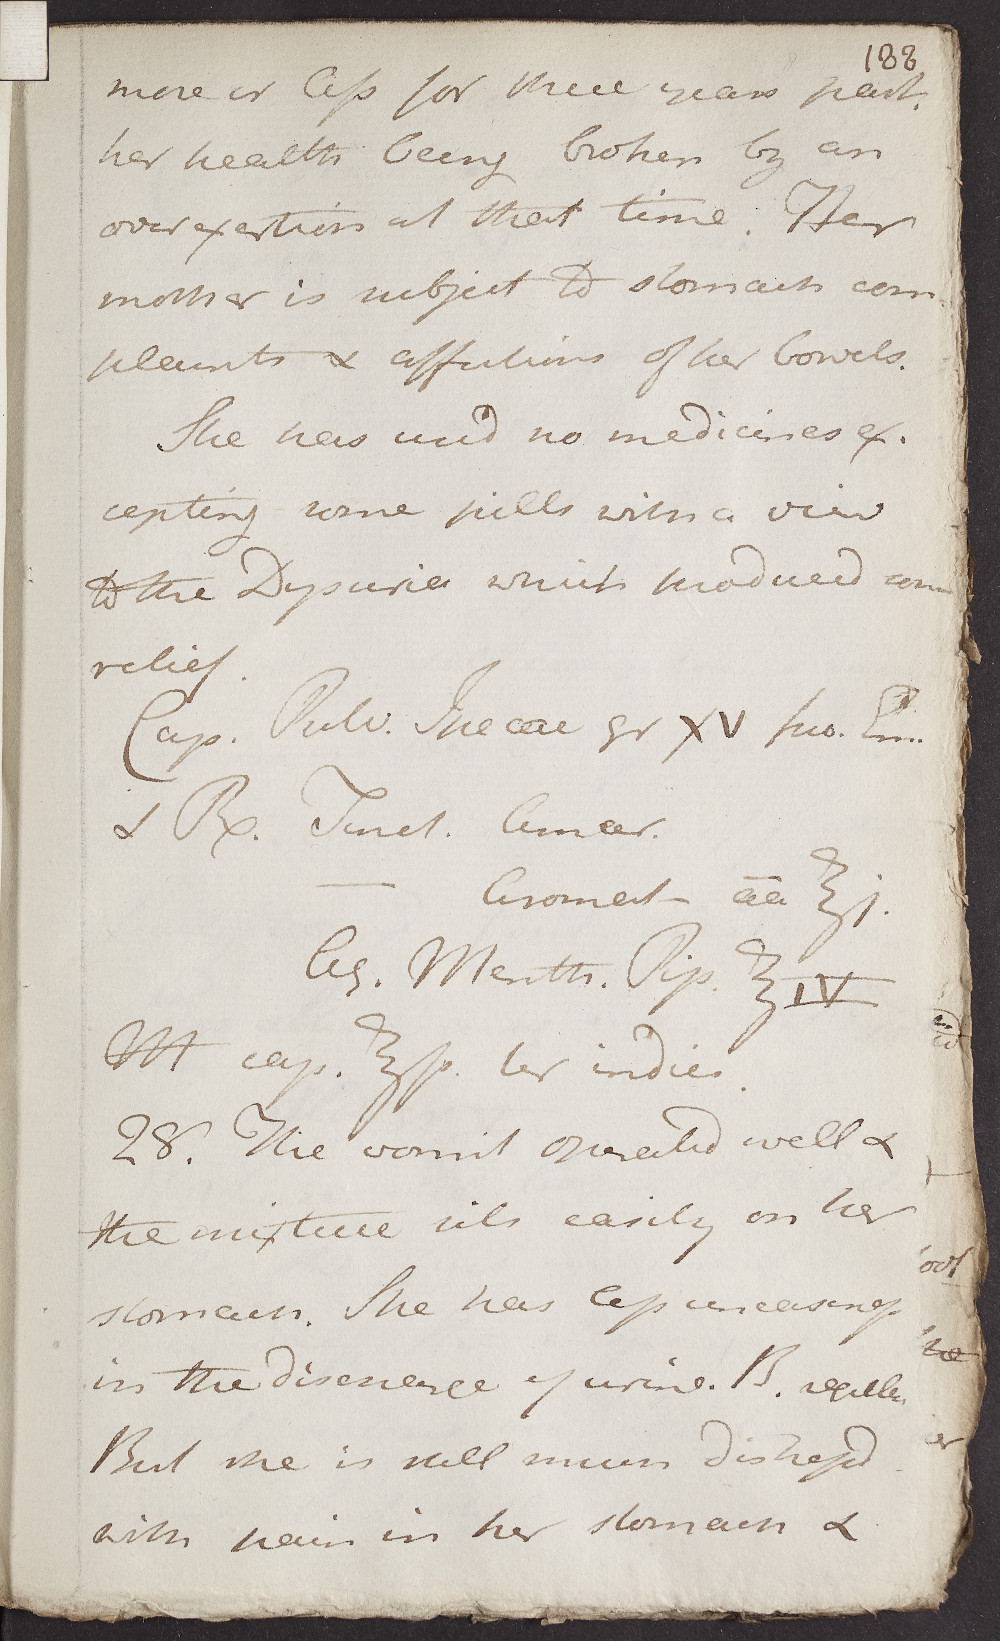 188
more or less for three years past,
her health being broken by an
overexertion at that time. Her
mother is subject to stomach com-
plaints & affections of her bowels.
She has used no medicines ex-
cepting some pills with a view
to the Dysuria which produced some
relief.
Cap. Pulv. Ipecac gr XV pro. Em.
& Rx. Tinct. Amar.
— Aromat āā ℥j.
Aq. Menth. Pip. ℥IV
M cap. ℥ſs. ter indies.
28. The vomit operated well &
the mixture sits easily on her
stomach. She has less uneasiness
in the discharge of urine. B. regular
But she is still much distressed
with pain in her stomach &